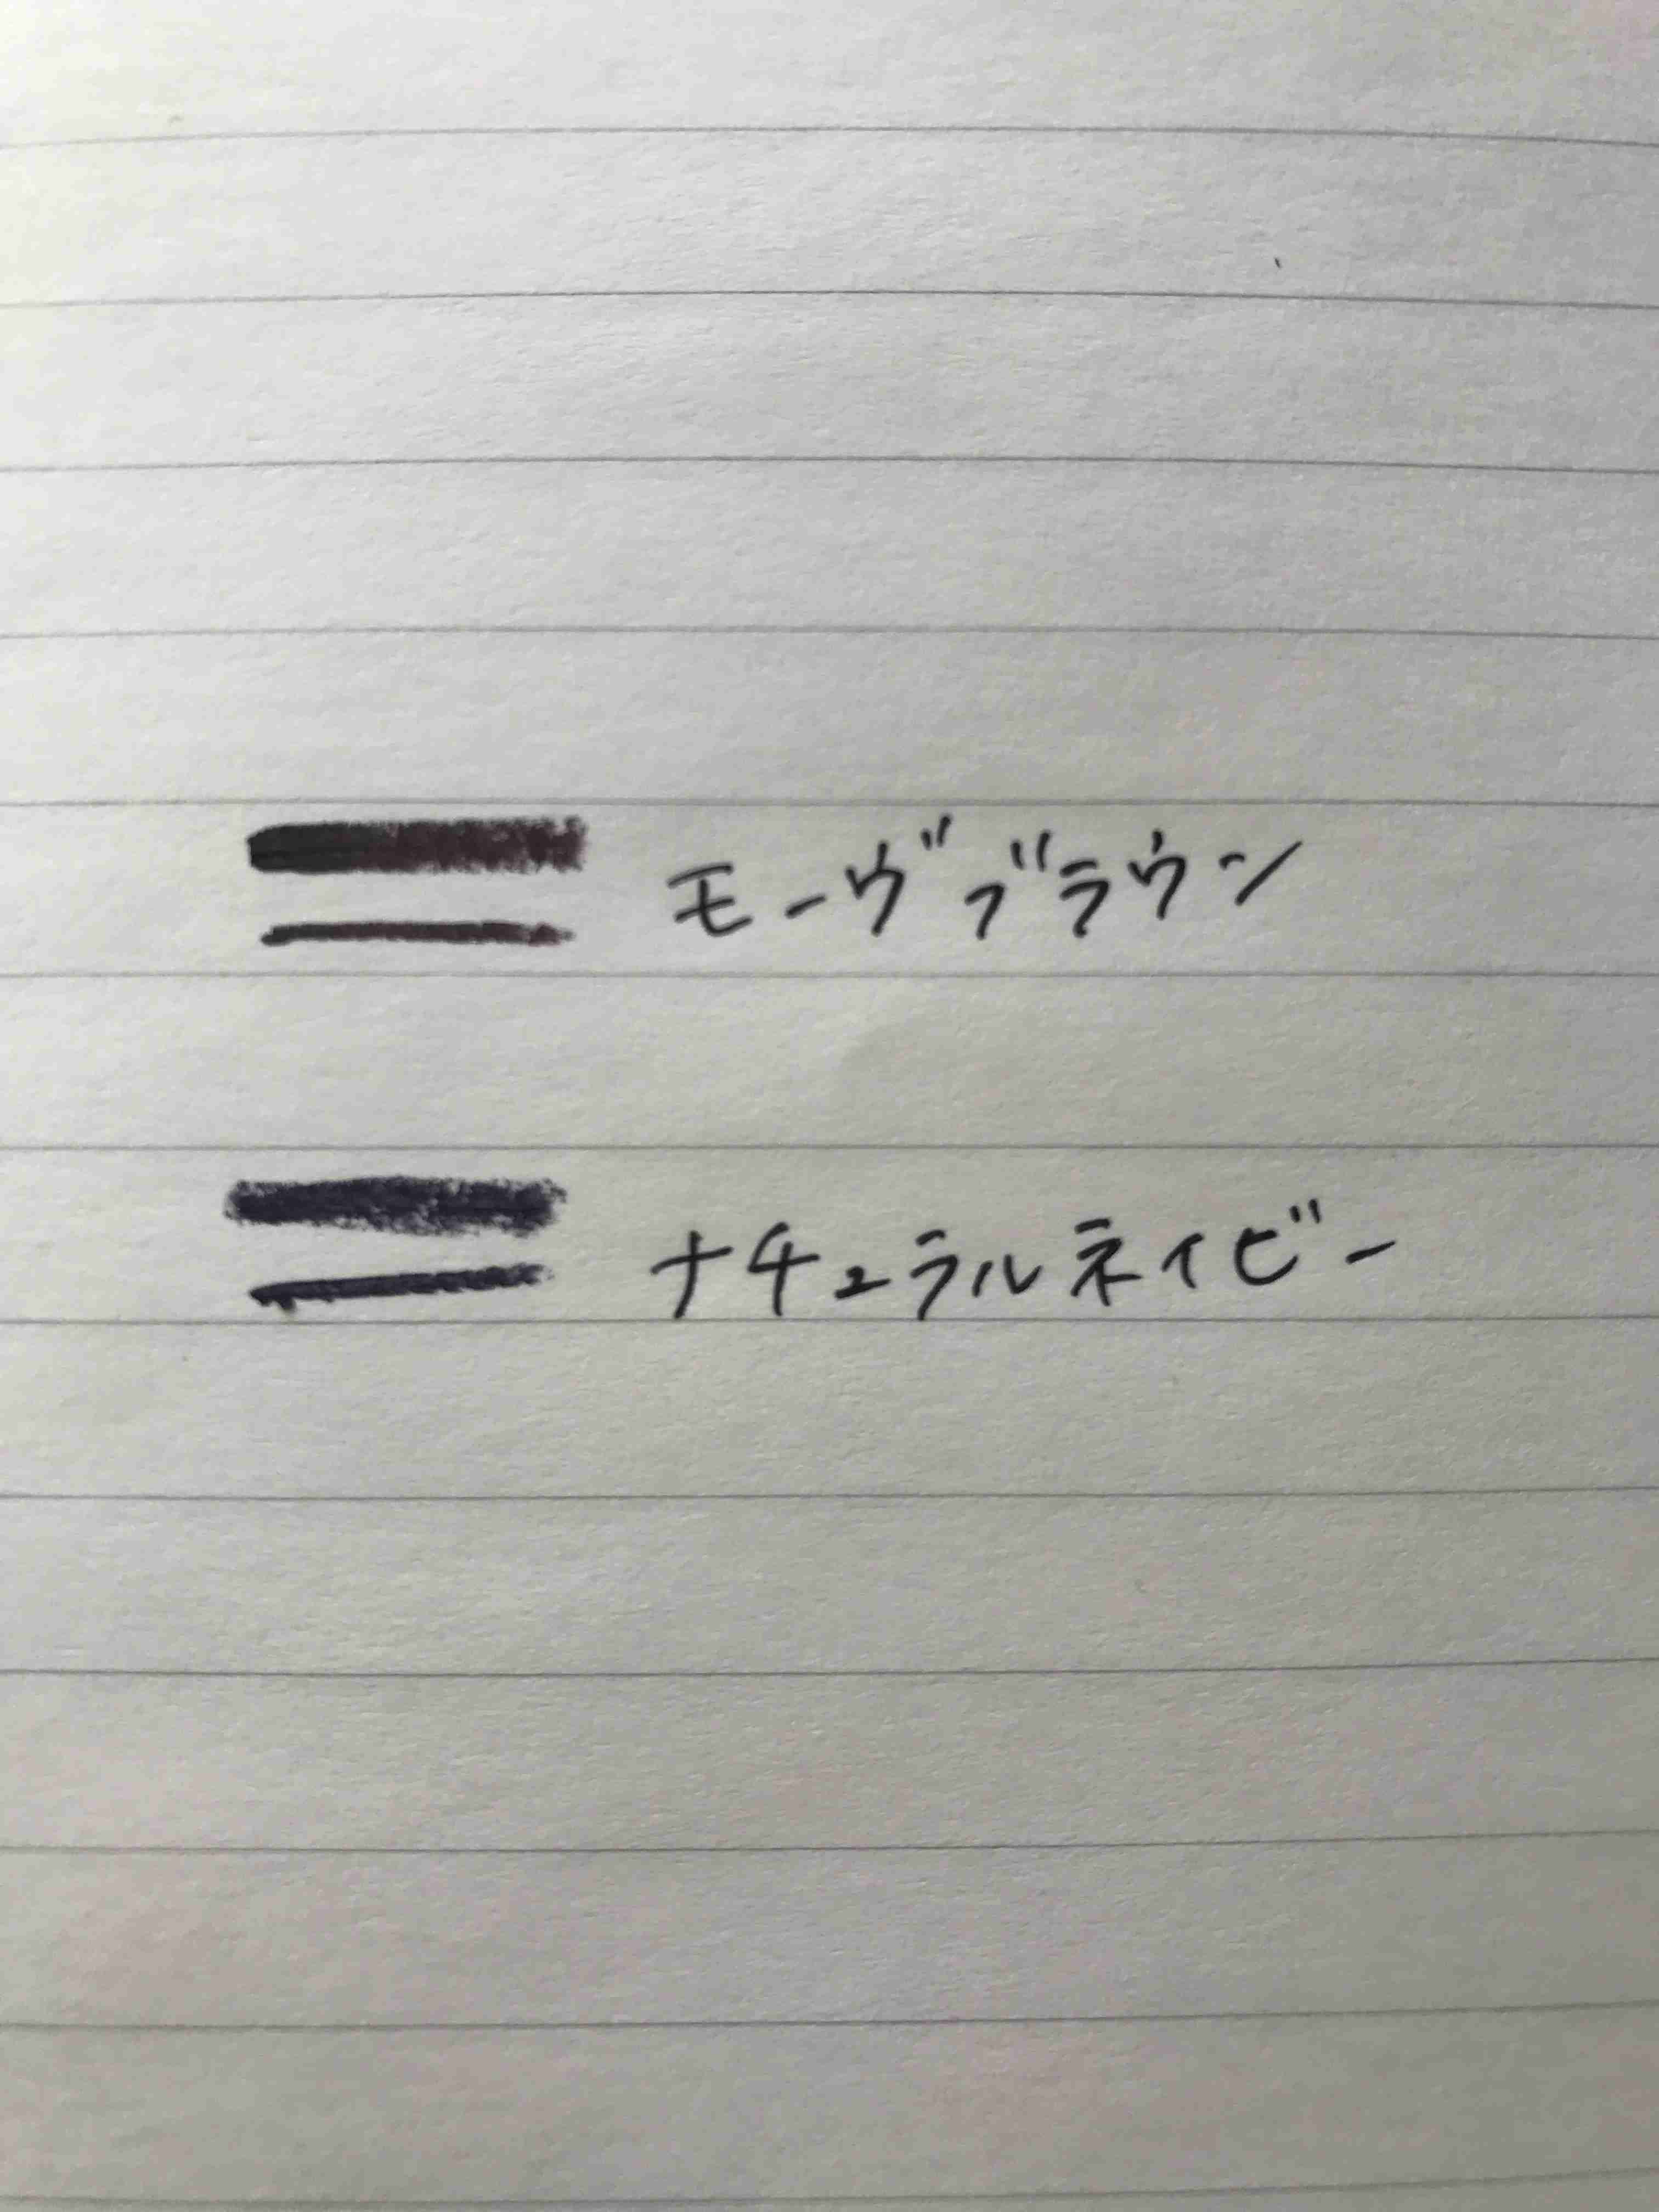 モーヴブラウン
ナチュラルネイビー